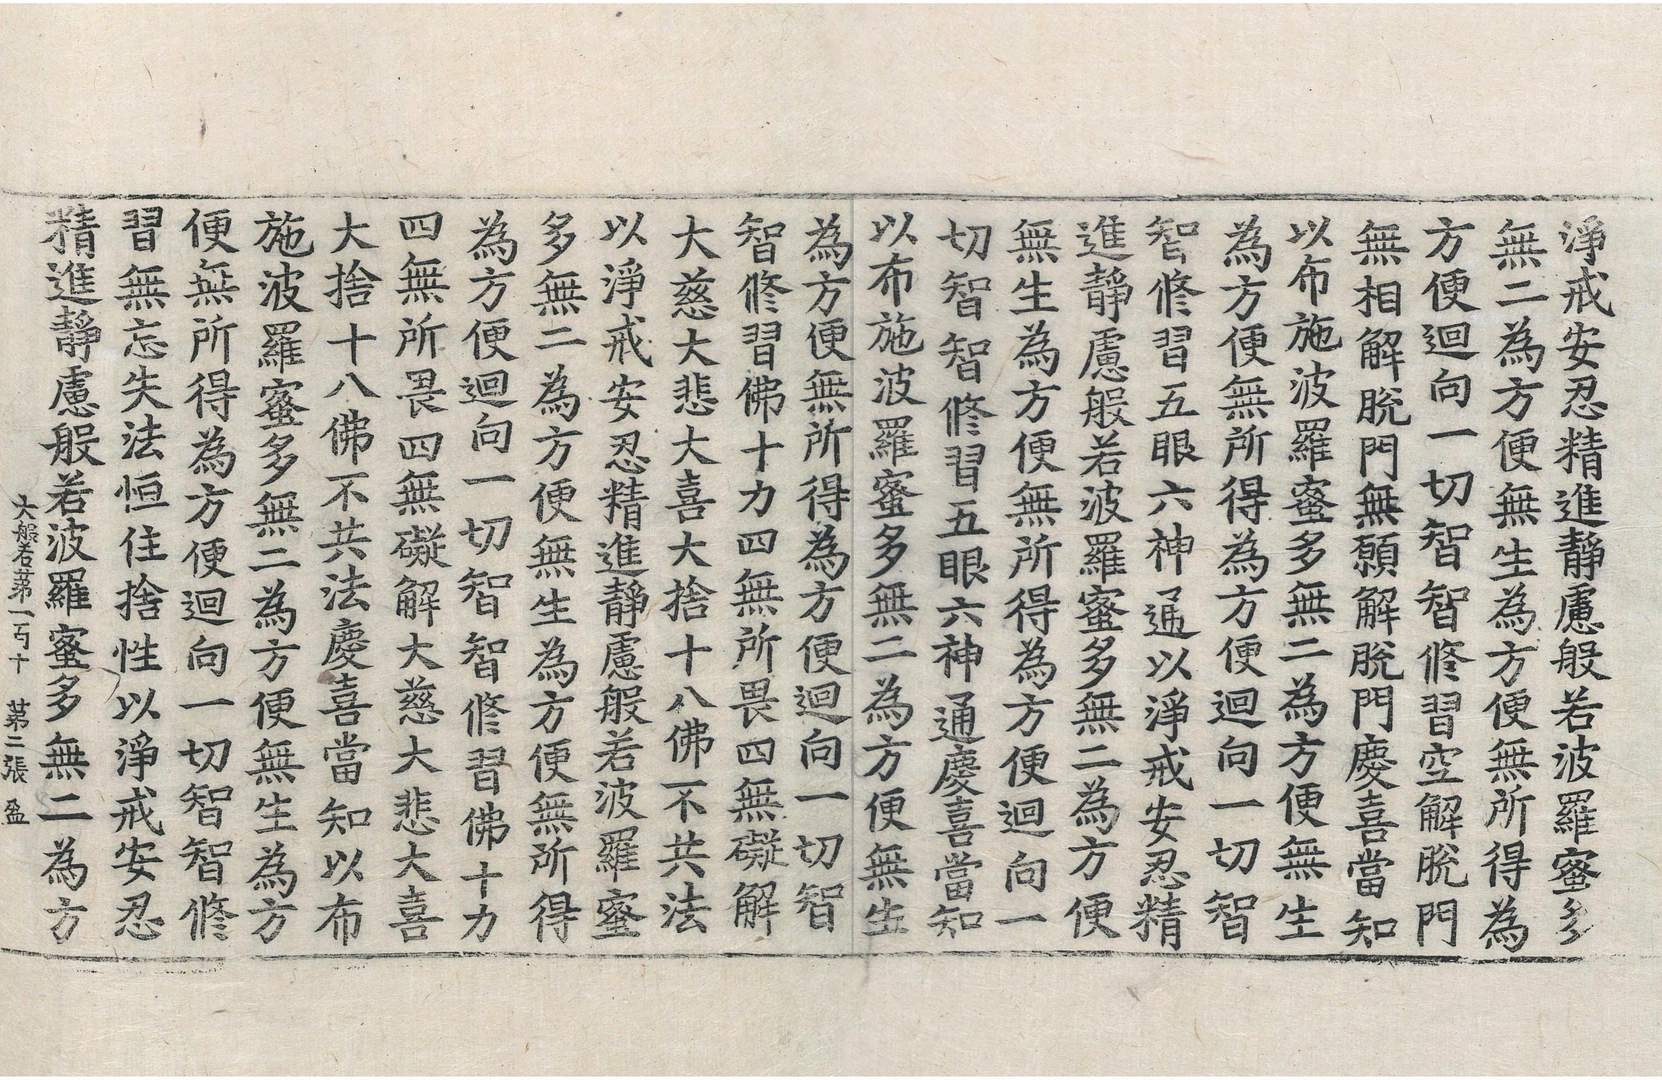 淨戒安忍精進靜慮般若波羅蜜多
無二為方便無生為方便無所得為
方便迴向一切智智修習空解脫門
無相解脫門無願解脫門慶喜當知
以布施波羅蜜多無二為方便無生
為方便無所得為方便迴向一切智
智修習五眼六神通以淨戒安忍精
進靜慮般若波羅蜜多無二為方便
無生為方便無所得為方便迴向一
切智智修習五眼六神通慶喜當知
以布施波羅蜜多無二為方便無生
為方便無所得為方便迴向一切智
智修習佛十力四無所畏四無礙解
大慈大悲大喜大捨十八佛不共法
以淨戒安忍精進靜慮般若波羅蜜
多無二為方便無生為方便無所得
為方便迴向一切智智修習佛十力
四無所畏四無礙解大慈大悲大喜
大捨十八佛不共法慶喜當知以布
施波羅蜜多無二為方便無生為方
便無所得為方便迴向一切智智修
習無忘失法恒住捨性以淨戒安忍
精進靜慮般若波羅蜜多無二為方
大般若苐一丐十 苐二張 盈